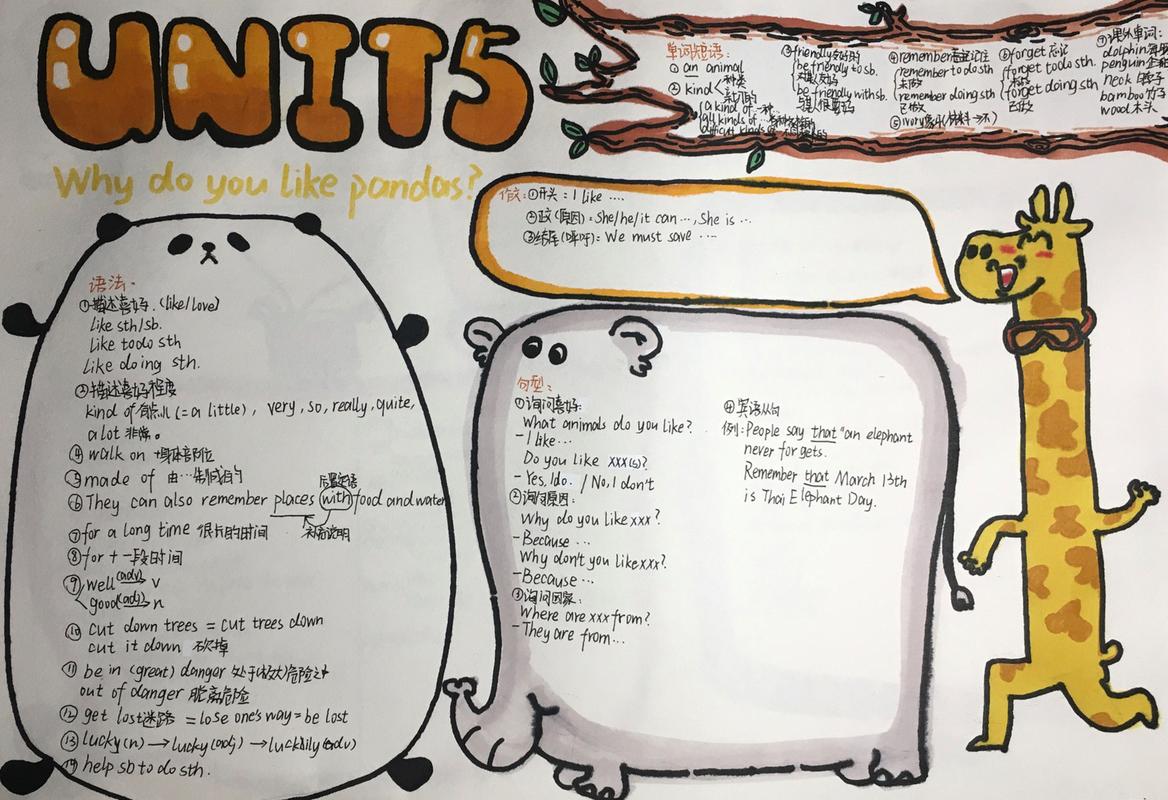 UNIT5
Why do you like pandas?
单词短语:
① an animal
② kind 种类
a kind of 一种
all kinds of
③ friendly 友好的
be friendly to sb.
对某人友好
be friendly with sb.
④ remember 记住
remember to do sth
未做
remember doing sth
已做
⑤ ivory 象牙
⑥ forget 忘记
forget to do sth.
未做
forget doing sth
已做
⑦ 课外单词:
dolphin
penguin 企鹅
neck
bamboo 竹子
wood 木头
作文:①开头:I like ....
②正文(原因):She/he/it can ..., She is ...
③结尾(呼吁):We must save ....
语法:
①描述喜好.(like/love)
Like sth/sb.
Like to do sth
Like doing sth.
②描述喜好程度
kind of 有点儿(=a little), very, so, really, quite,
a lot 非常。
④ walk on +身体部位
⑤ made of 由…制成的
后置定语
⑥ They can also remember places with food and water
补充说明
⑦ for a long time 很长的时间
⑧ for + 一段时间
⑨ well (adv) v
good (adj) n
⑩ cut down trees = cut trees down
cut it down 砍掉
⑪ be in (great) danger 处于(极大)危险之中
out of danger 脱离危险
⑫ get lost 迷路 = lose one's way = be lost
⑬ lucky(n) → lucky(adj) → luckily(adv)
⑭ help sb to do sth.
句型:
①询问喜好:
What animals do you like?
- I like ...
Do you like xxx(s)?
- Yes, I do. / No, I don't
②询问原因:
Why do you like xxx?
- Because ...
Why don't you like xxx?
- Because ...
③询问国家:
Where are xxx from?
- They are from...
④英语从句
例:People say that "an elephant
never forgets.
Remember that March 13th
is Thai Elephant Day.